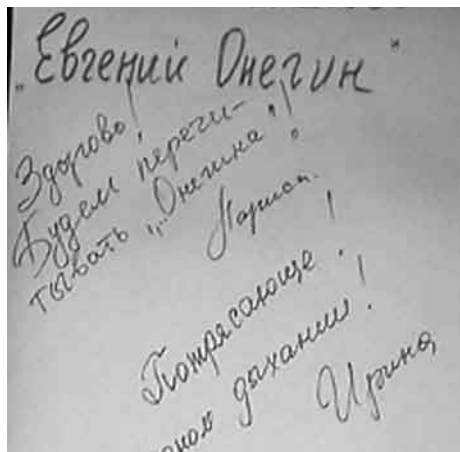 „Евгений Онегин"
Здорово!
Будем перечи-
тывать „Онегина"!
Потрясающе!
дыхании!
Ирина